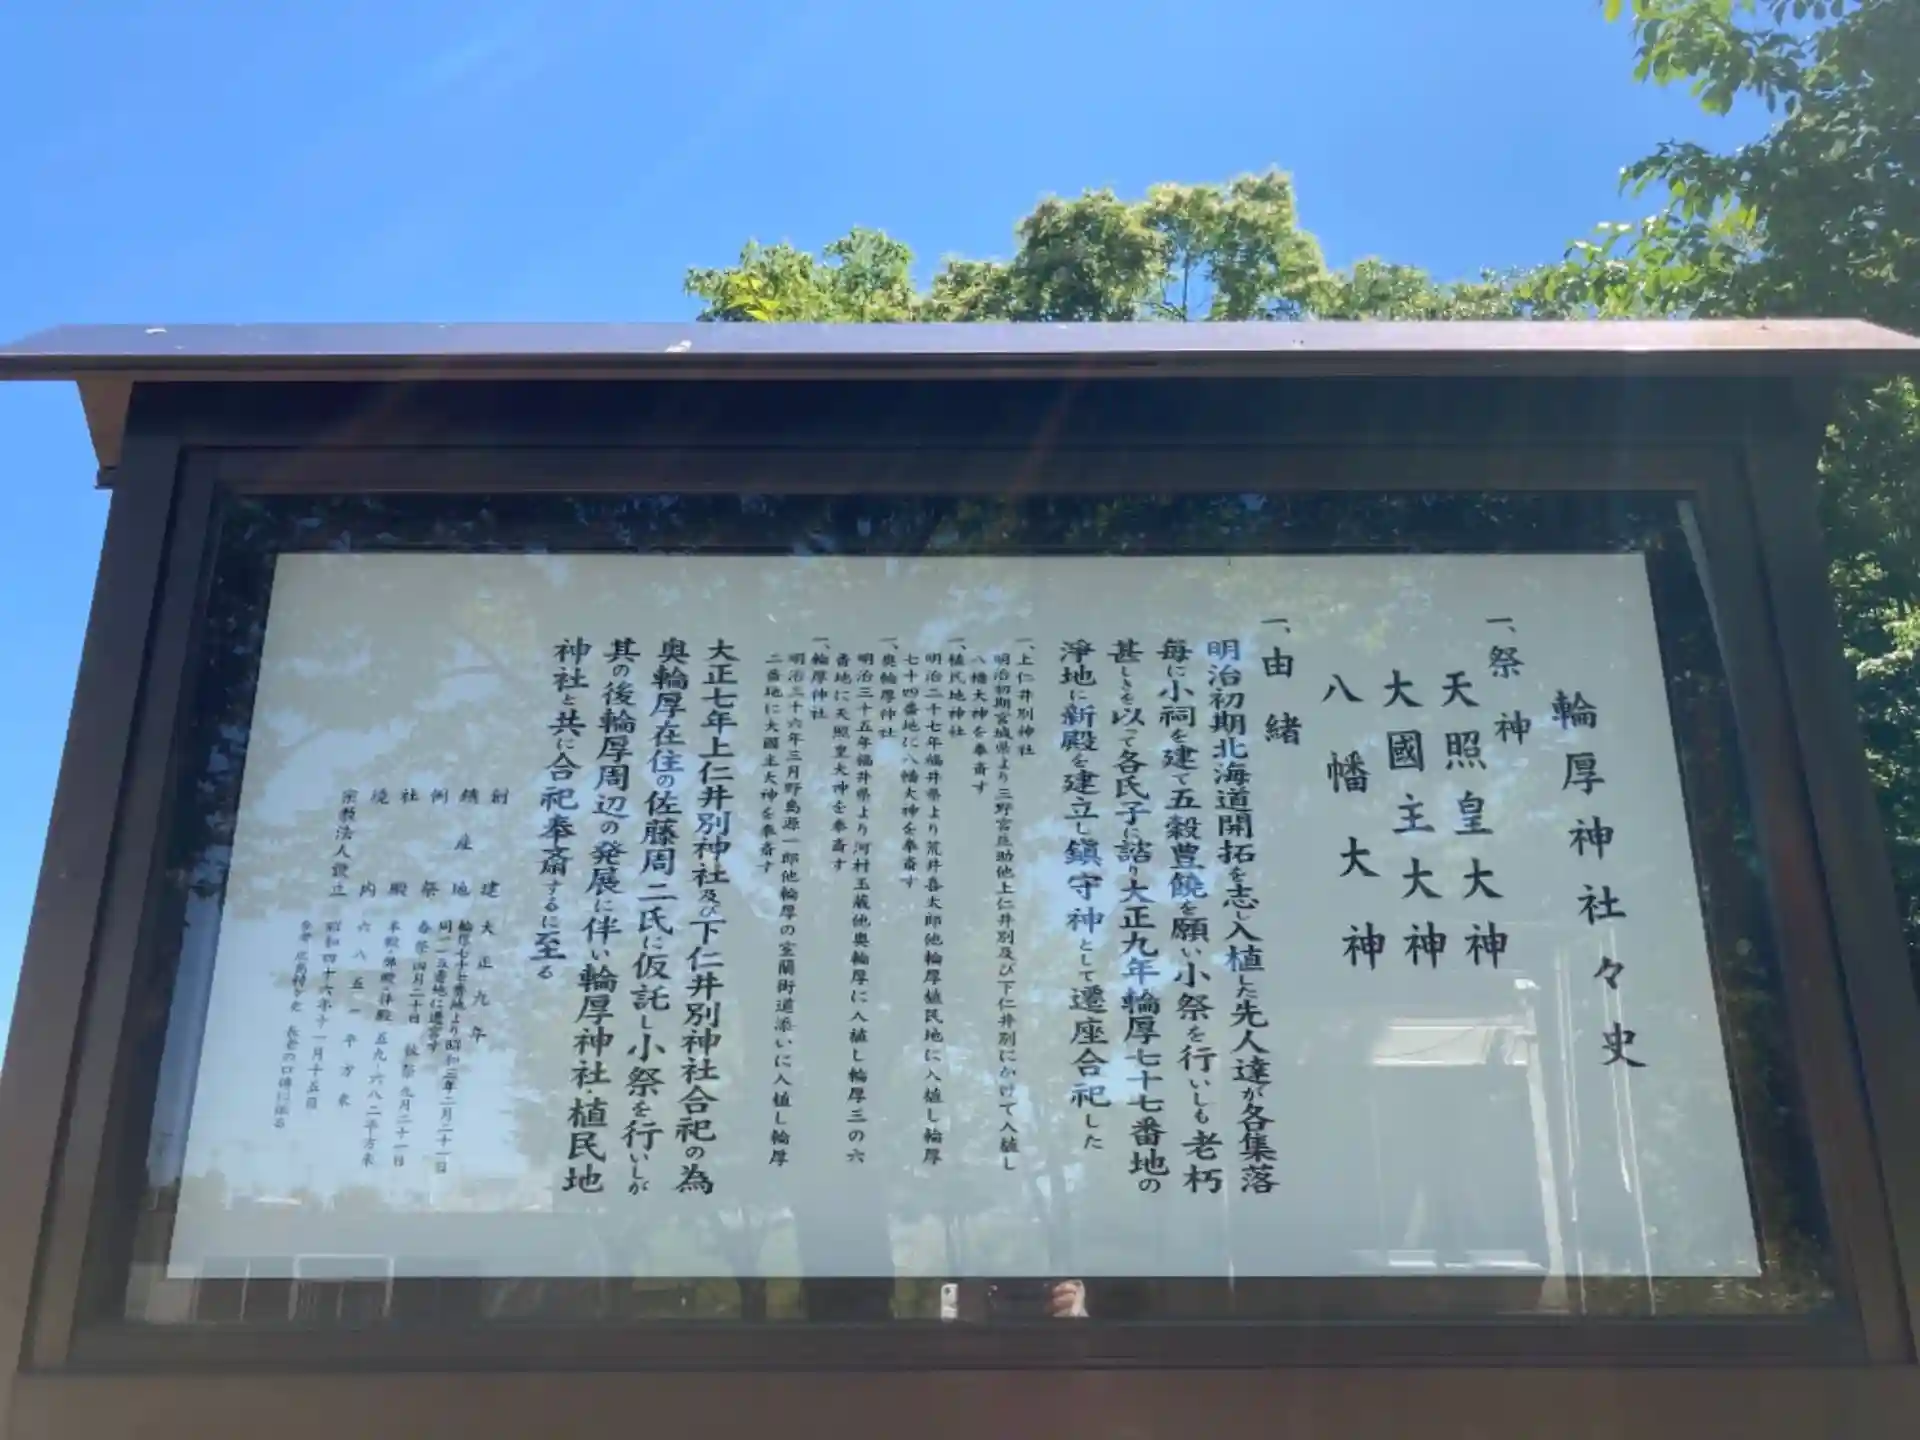 輪厚神社々史
一、祭神
天照皇大神
大國主大神
八幡大神
一、由緒
明治初期北海道開拓を志し入植した先人達が各集落
毎に小祠を建て五穀豊饒を願い小祭を行いしも老朽
甚しきを以って各氏子に諮り大正九年輪厚七十七番地の
淨地に新殿を建立し鎮守神として遷座合祀した
一、上仁井別神社
明治初期宮城県より三野宮庄助他上仁井別及び下仁井別にかけて入植し
八幡大神を奉斎す
一、植民地神社
明治二十七年福井県より荒井喜太郎他輪厚植民地に入植し輪厚
七十四番地に八幡大神を奉斎す
一、奥輪厚神社
明治三十五年福井県より河村玉蔵他奥輪厚に入植し輪厚三の六
番地に天照皇大神を奉斎す
一、輪厚神社
明治三十六年三月野島源一郎他輪厚の室蘭街道添いに入植し輪厚
二番地に大國主大神を奉斎す
大正七年上仁井別神社及び下仁井別神社合祀の為
奥輪厚在住の佐藤周二氏に仮託し小祭を行いしが
其の後輪厚周辺の発展に伴い輪厚神社・植民地
神社と共に合祀奉斎するに至る
創建 大正九年
鎮座地 輪厚七十七番地より昭和三年二月二十一日
同一一五番地に遷宮す
例祭 春祭四月二十日 秋祭九月二十一日
社殿 本殿・幣殿・拝殿 五九・六八二平方米
境内 六八五一平方米
宗教法人設立 昭和四十六年十一月十五日
参考 広島村々史 長老の口碑に依る